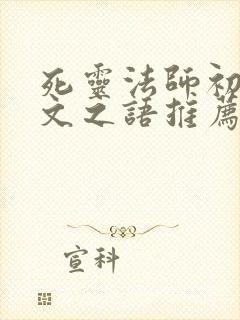 死靈法師初
文之語推薦
宣科